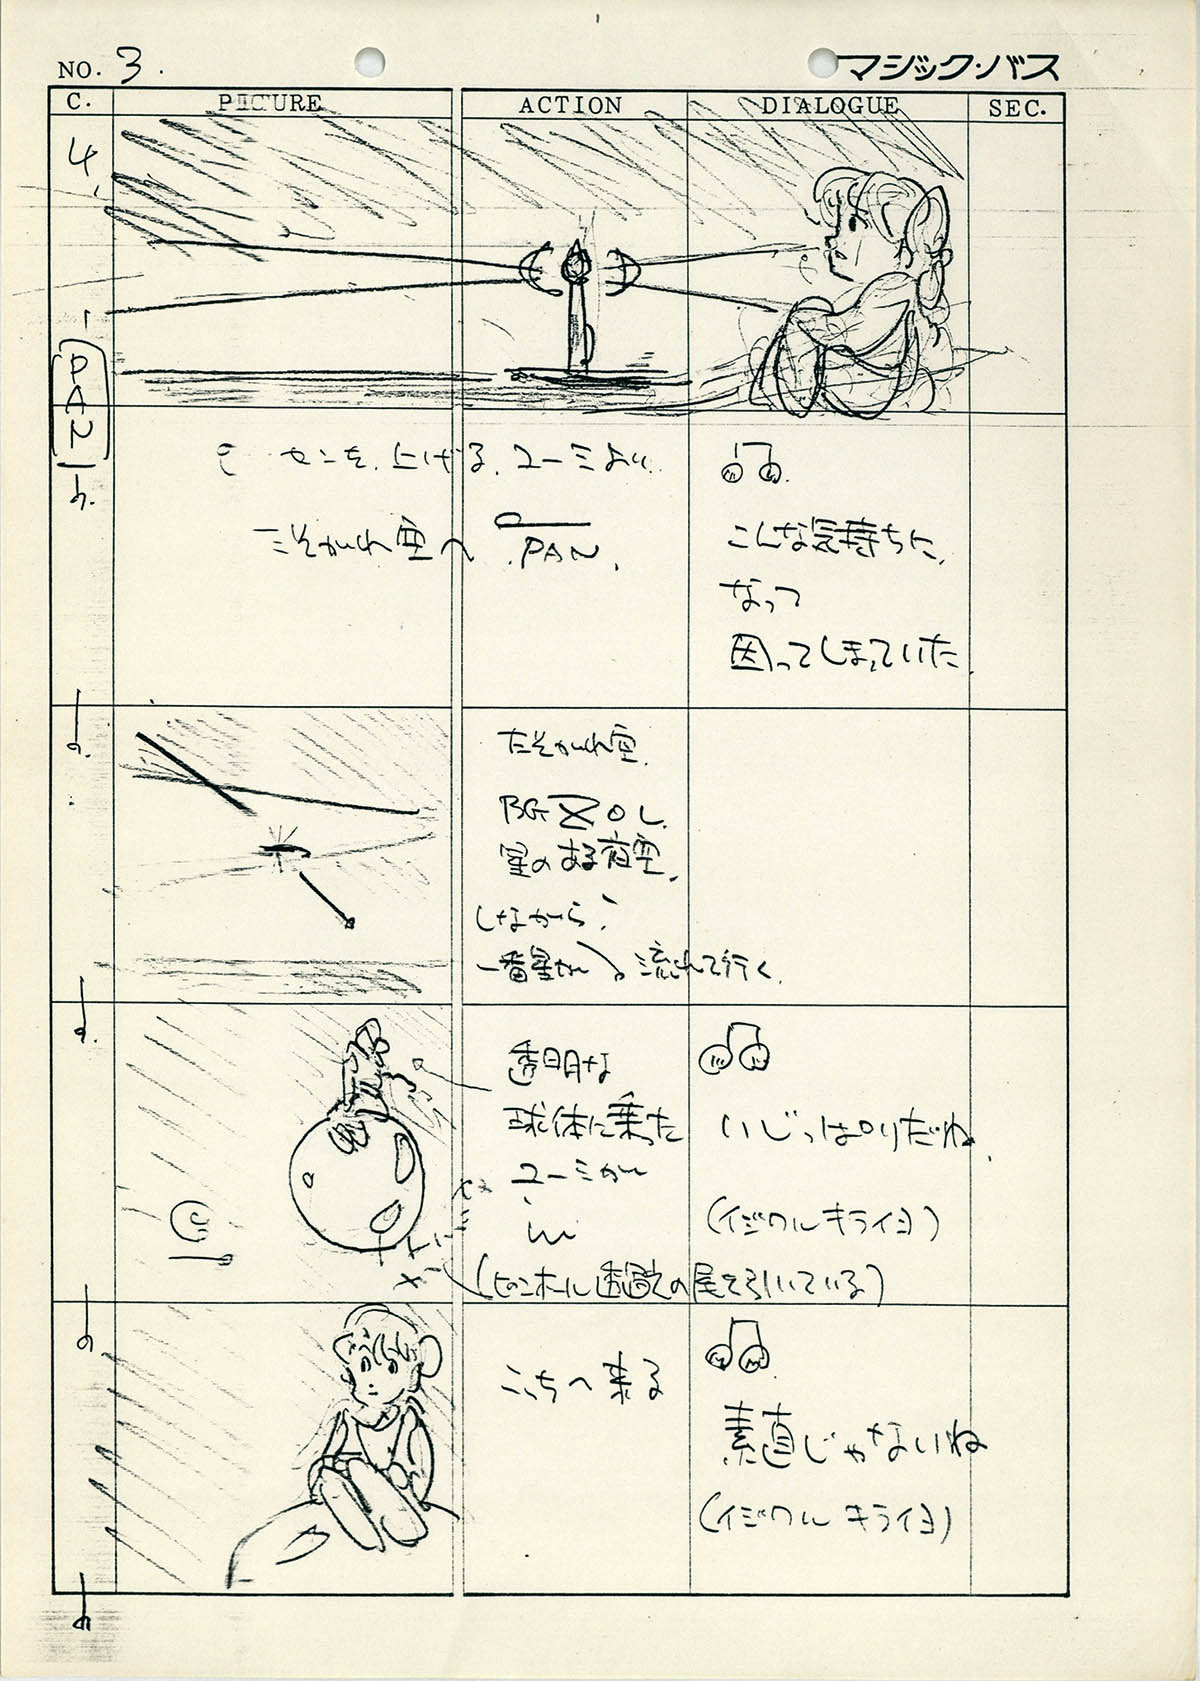 NO. 3.
マジック・バス
C. PICTURE ACTION DIALOGUE SEC.
4
PAN
センを、上げる、ユーミより
たそがれ空へ PAN.
こんな気持ちに、
なって
困ってしまっていた
たそがれ空、
BG O L
星のある夜空、
しながら、
一番星が 流れて行く、
透明な
球体に乗った
ユーミが
in
(ピンホール透過光の尾を引いている)
いじっぱりだね、
(イジワルキライヨ)
こっちへ来る
素直じゃないね
(イジワル キライヨ)